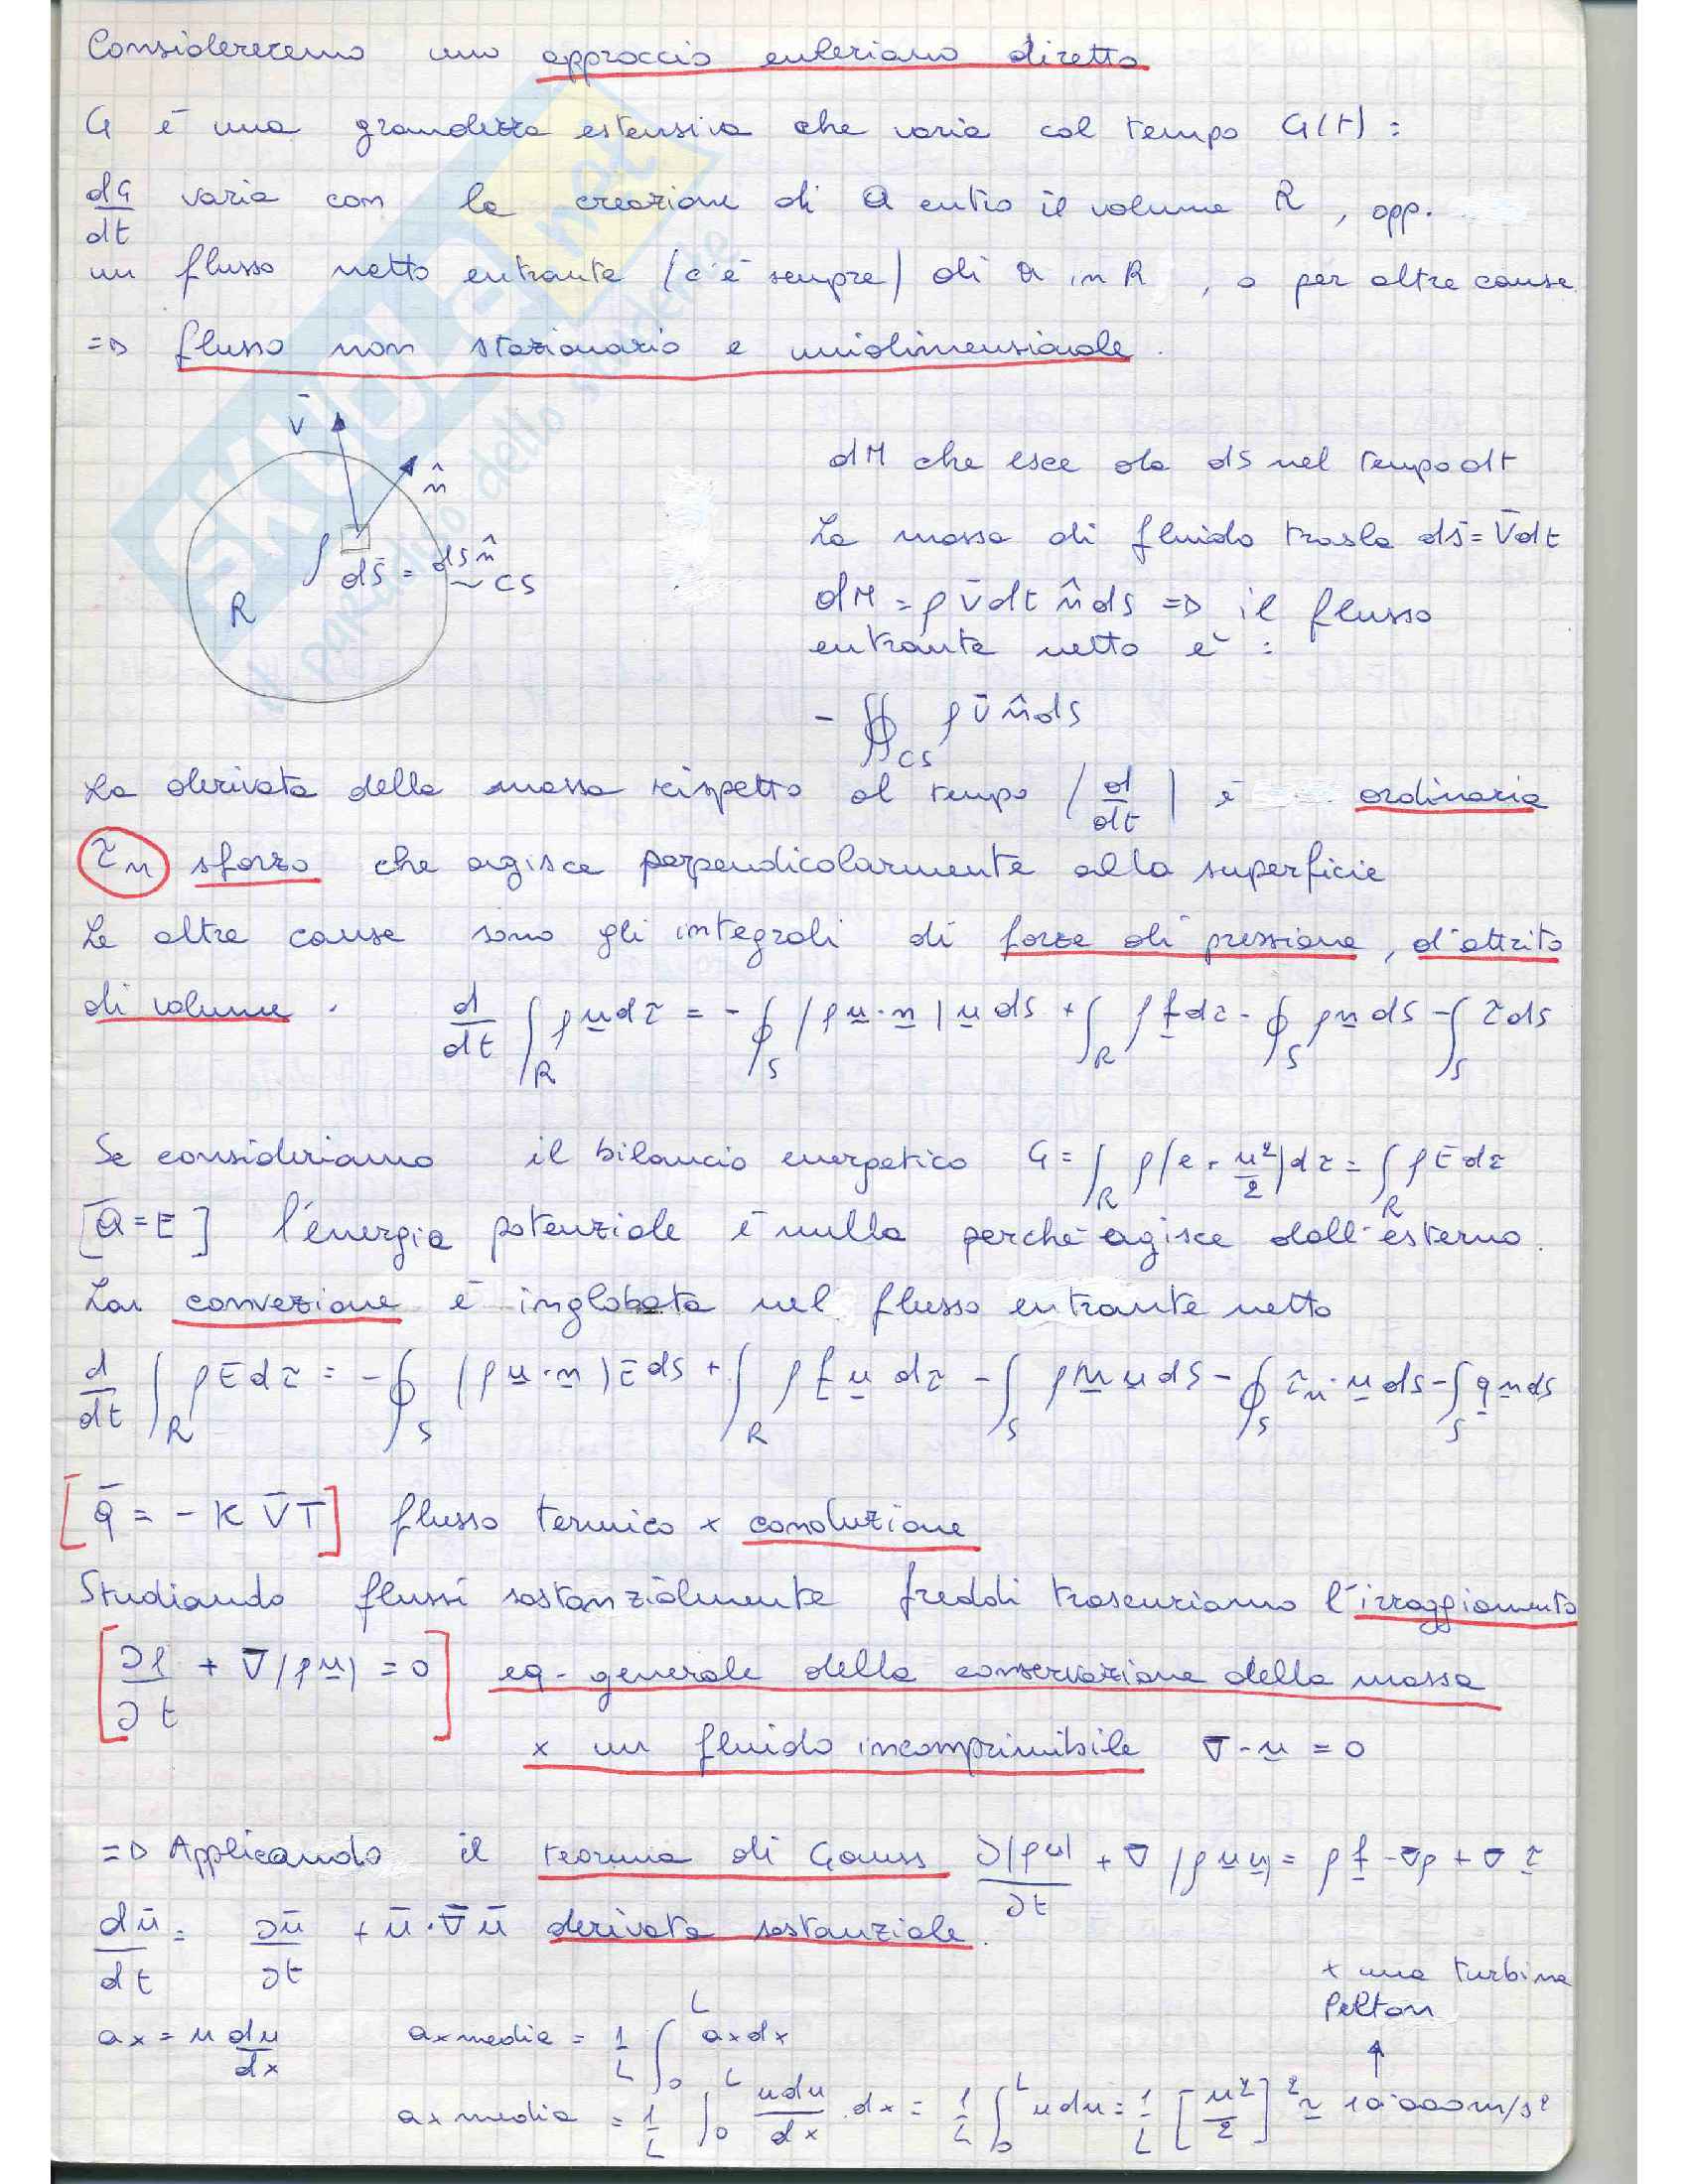 Considereremo uno approccio euleriano diretto
G è una grandezza estensiva che varia col tempo G(t) :
dG/dt varia con la creazione di a entro il volume R , opp.
un flusso netto entrante (c'è sempre) di a in R , o per altre cause
=> flusso non stazionario e unidimensionale .
v̄
n̂
∫ dS̄ = dS n̂
~ CS
R
dM che esce da dS nel tempo dt
La massa di fluido trasla ds̄ = v̄dt
dM = ρ v̄dt n̂ dS => il flusso
entrante netto è :
- ∯_CS ρ v̄ n̂ dS
La derivata della massa rispetto al tempo (d/dt) è ordinaria
τn sforzo che agisce perpendicolarmente alla superficie
Le altre cause sono gli integrali di forze di pressione, d'attrito
di volume . d/dt ∫_R ρ u dτ = - ∮_S (ρ u · n) u dS + ∫_R ρ f dτ - ∮_S p n dS - ∫_S τ dS
Se consideriamo il bilancio energetico G = ∫_R ρ (e + u²/2) dτ = ∫_R ρ E dτ
[a = E] l'energia potenziale è nulla perché agisce dall'esterno .
La convezione è inglobata nel flusso entrante netto
d/dt ∫_R ρ E dτ = - ∮_S (ρ u · n) E dS + ∫_R ρ f u dτ - ∫_S p n u dS - ∮_S τn · u dS - ∫_S q n dS
[q̄ = - K ∇̄T] flusso termico x conduzione
Studiando flussi sostanzialmente freddi trascuriamo l'irraggiamento
[∂ρ/∂t + ∇̄ (ρ u) = 0] eq. generale della conservazione della massa
x un fluido incomprimibile ∇ · u = 0
=> Applicando il teorema di Gauss ∂(ρu)/∂t + ∇ (ρ u u) = ρ f - ∇p + ∇ τ
dū/dt = ∂ū/∂t + ū · ∇̄ ū derivata sostanziale .
x una turbina
Pelton
ax = u du/dx ax media = 1/L ∫_0^L ax dx
ax media = 1/L ∫_0^L u du/dx · dx = 1/L ∫_0^L u du = 1/L [u²/2]² ≃ 10'000 m/s²
SKUOLA.net
il paradiso dello studente